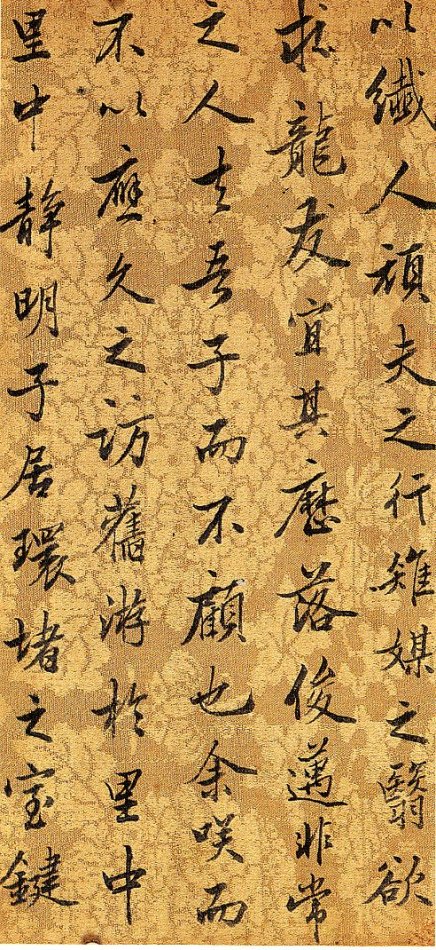 以纖人頑夫之行雉媒之翳欲
招龍友宜其歷落俊邁非常
之人去吾子而不顧也余咲而
不以應久之訪舊游於里中
里中靜明子居環堵之室鍵